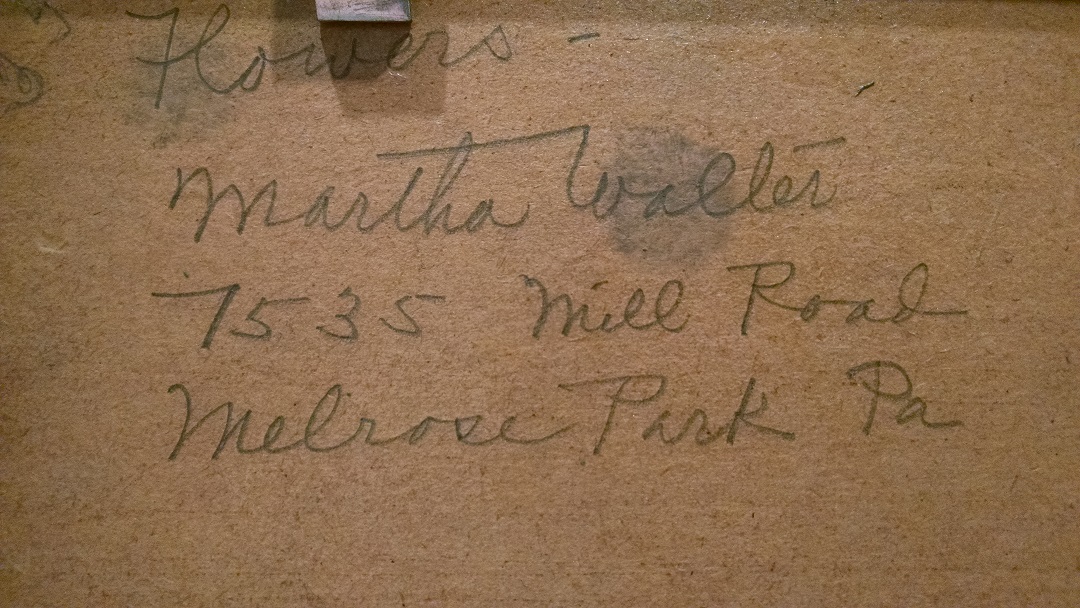 Flowers -
Martha Walter
7535 Mill Road
Melrose Park Pa